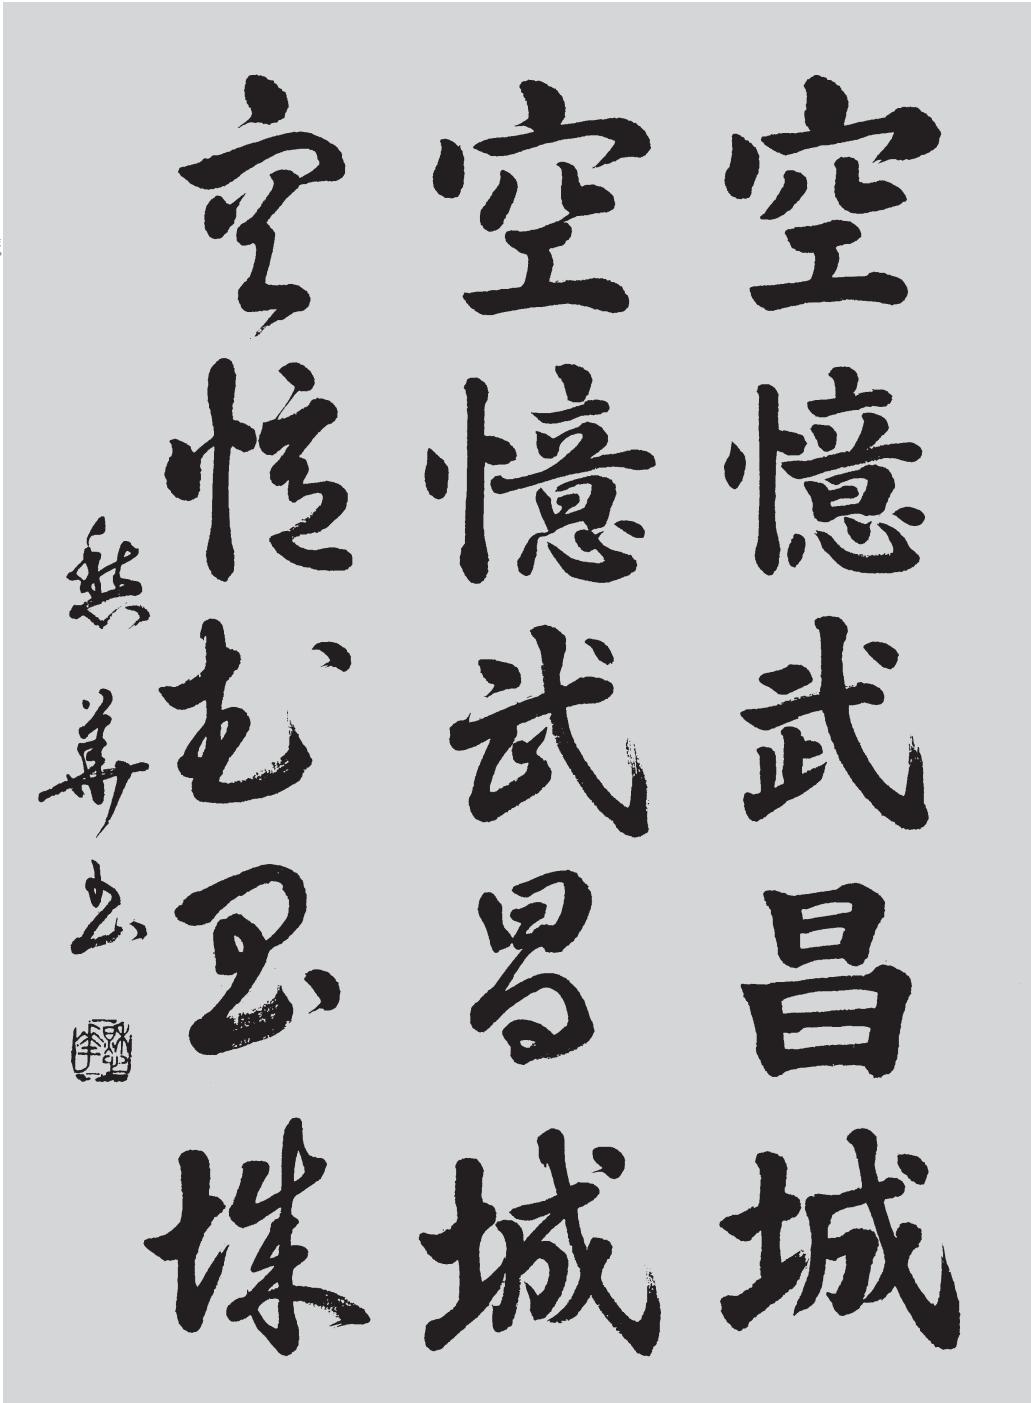 空憶武昌城
空憶武昌城
空憶武昌城
愁華书